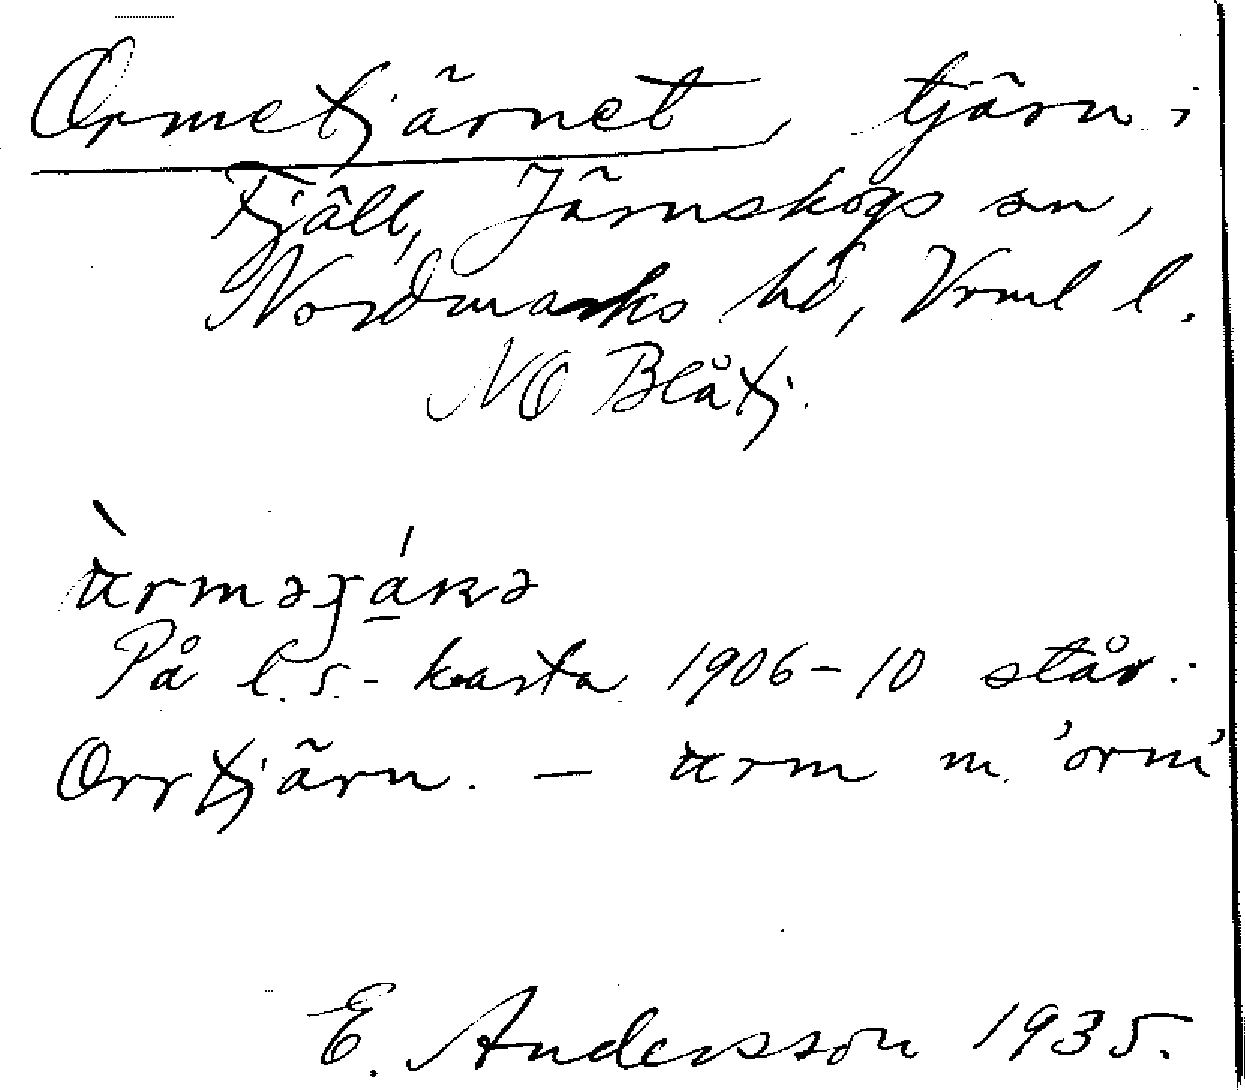 Ormetjärnet, tjärn i
Fjäll, Järnskogs sn,
Nordmarks hd, Vrml l.
NO Blåtj.
På l.s.-karta 1906-10 står:
Orrtjärn. — arm m. 'orm'
E. Andersson 1935.